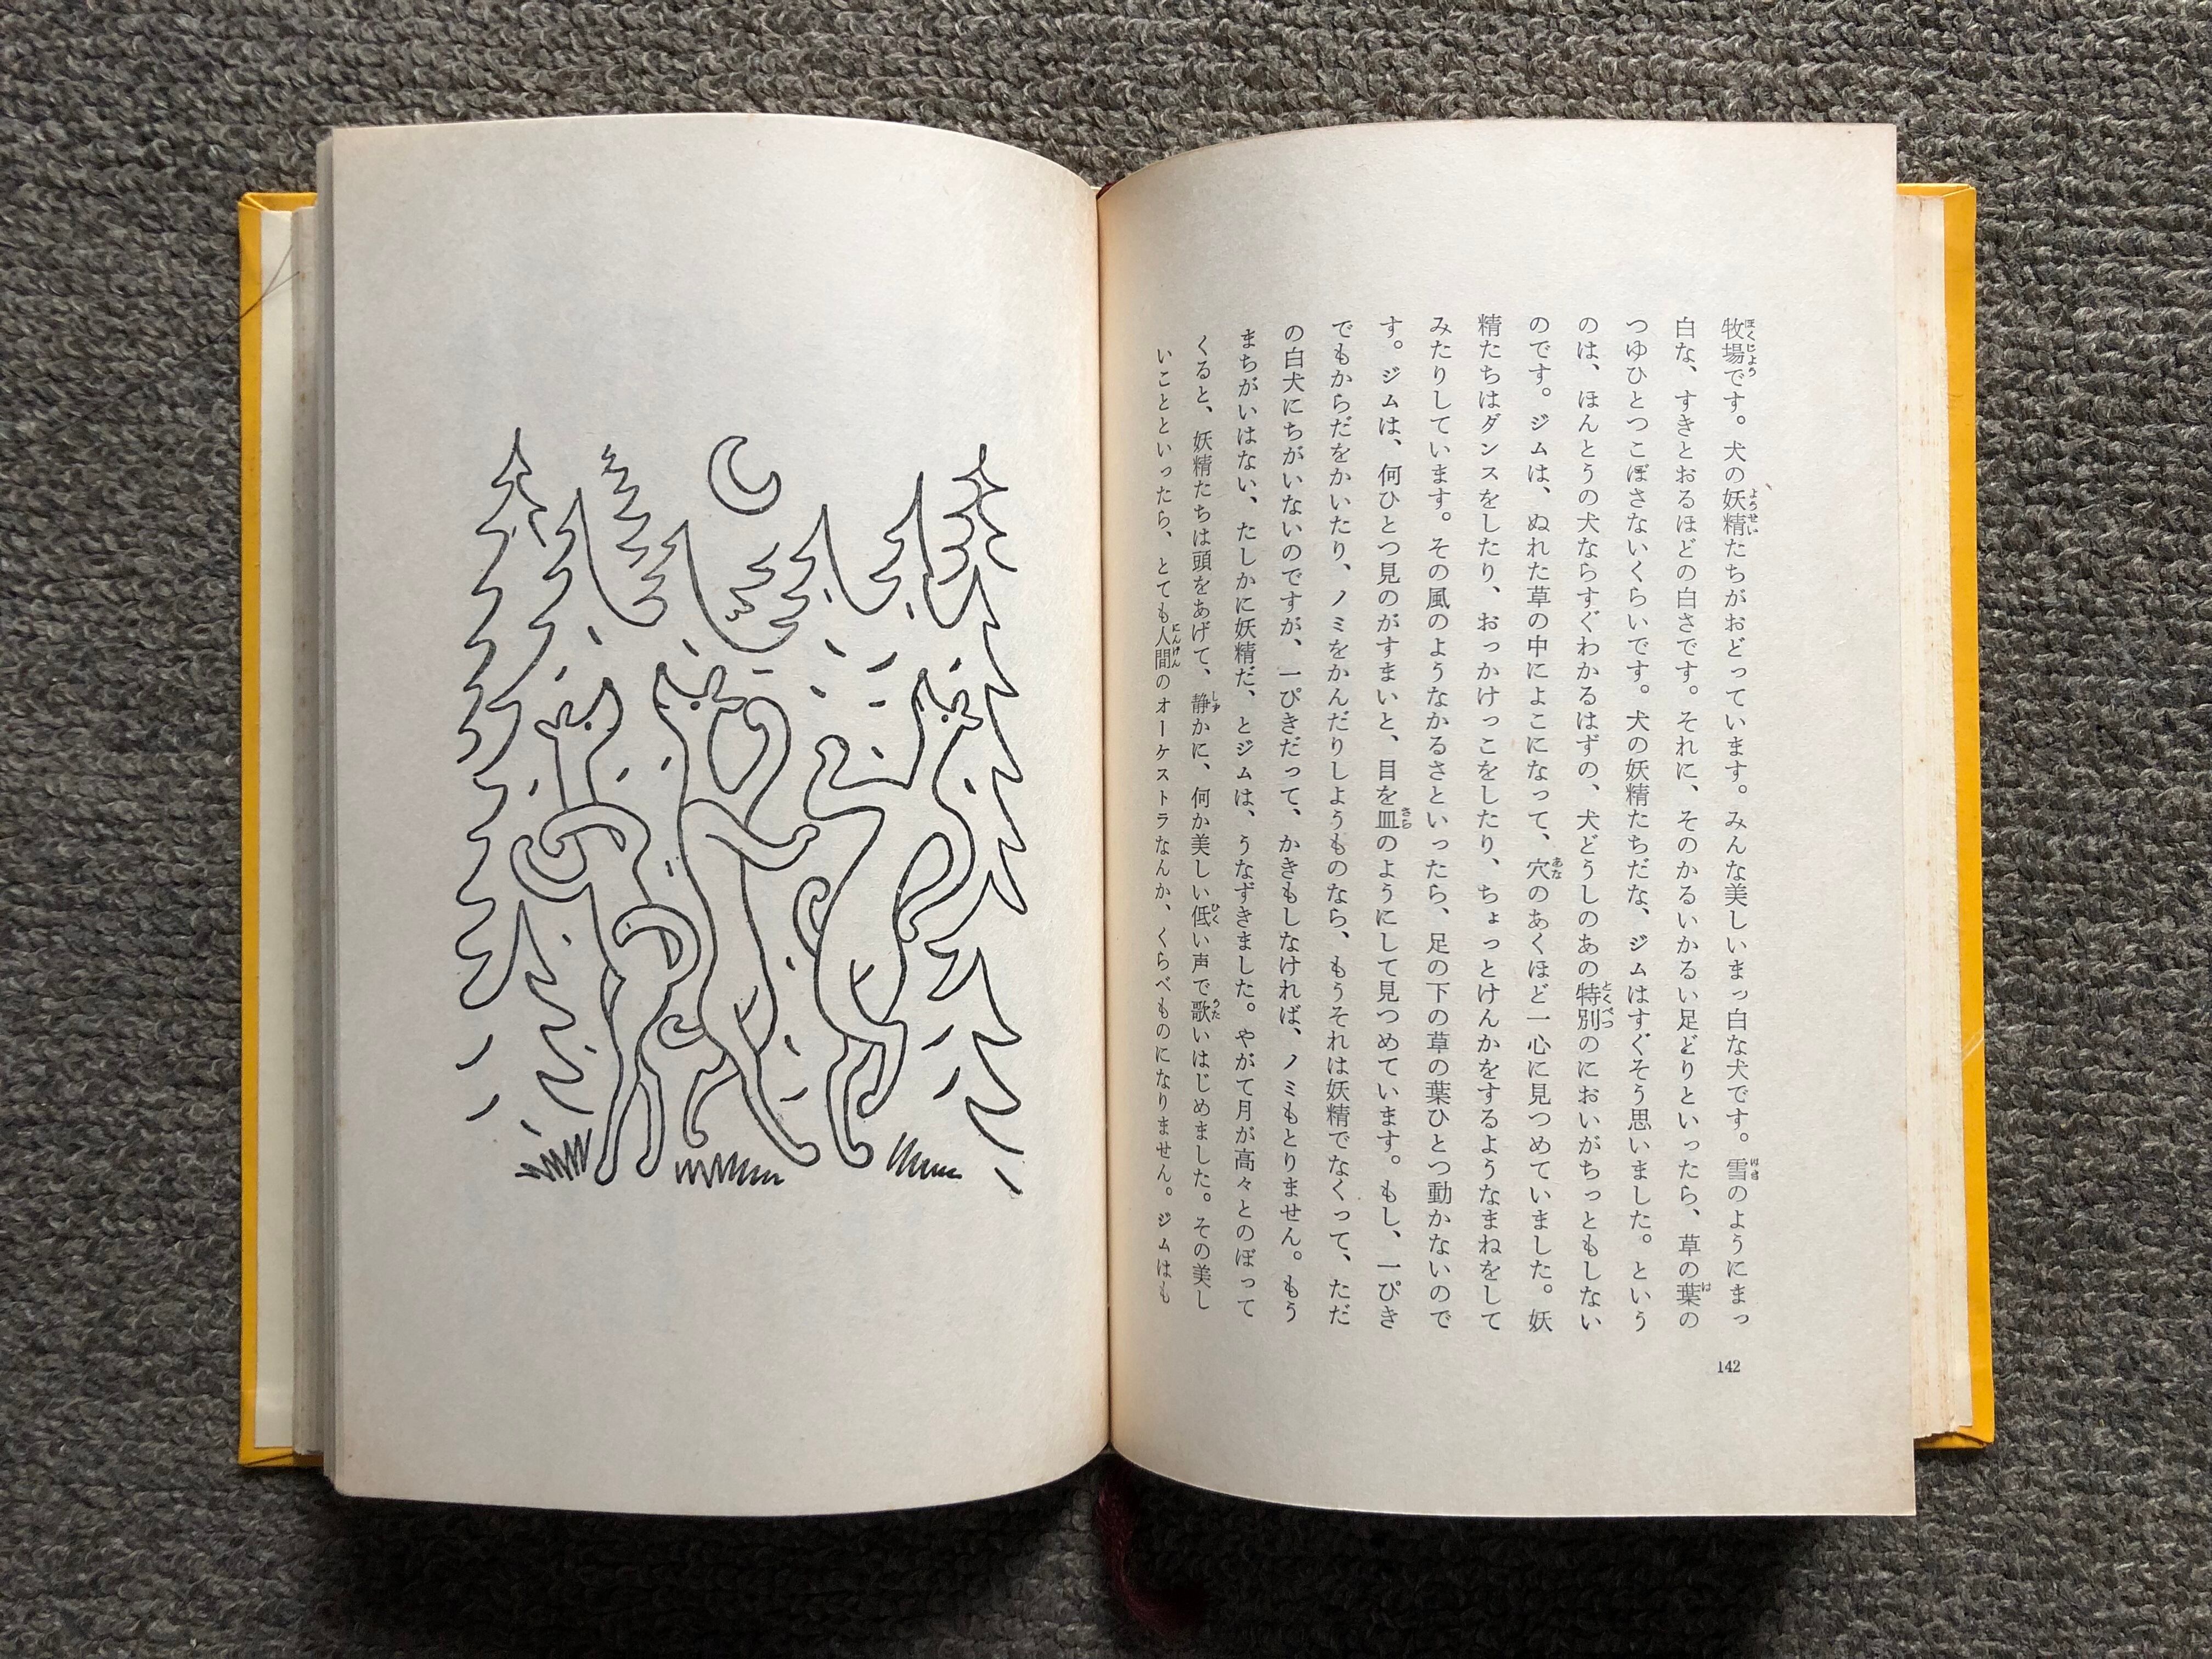 牧場です。犬の妖精たちがおどっています。みんな美しいまっ白な犬です。雪のようにまっ
白な、すきとおるほどの白さです。それに、そのかるいかるい足どりといったら、草の葉の
つゆひとつこぼさないくらいです。犬の妖精たちだな、ジムはすぐそう思いました。という
のは、ほんとうの犬ならすぐわかるはずの、犬どうしのあの特別のにおいがちっともしない
のです。ジムは、ぬれた草の中によこになって、穴のあくほど一心に見つめていました。妖
精たちはダンスをしたり、おっかけっこをしたり、ちょっとけんかをするようなまねをして
みたりしています。その風のようなかるさといったら、足の下の草の葉ひとつ動かないので
す。ジムは、何ひとつ見のがすまいと、目を皿のようにして見つめています。もし、一ぴき
でもからだをかいたり、ノミをかんだりしようものなら、もうそれは妖精でなくって、ただ
の白犬にちがいないのですが、一ぴきだって、かきもしなければ、ノミもとりません。もう
まちがいはない、たしかに妖精だ、とジムは、うなずきました。やがて月が高々とのぼって
くると、妖精たちは頭をあげて、静かに、何か美しい低い声で歌いはじめました。その美し
いことといったら、とても人間のオーケストラなんか、くらべものになりません。ジムはも
142